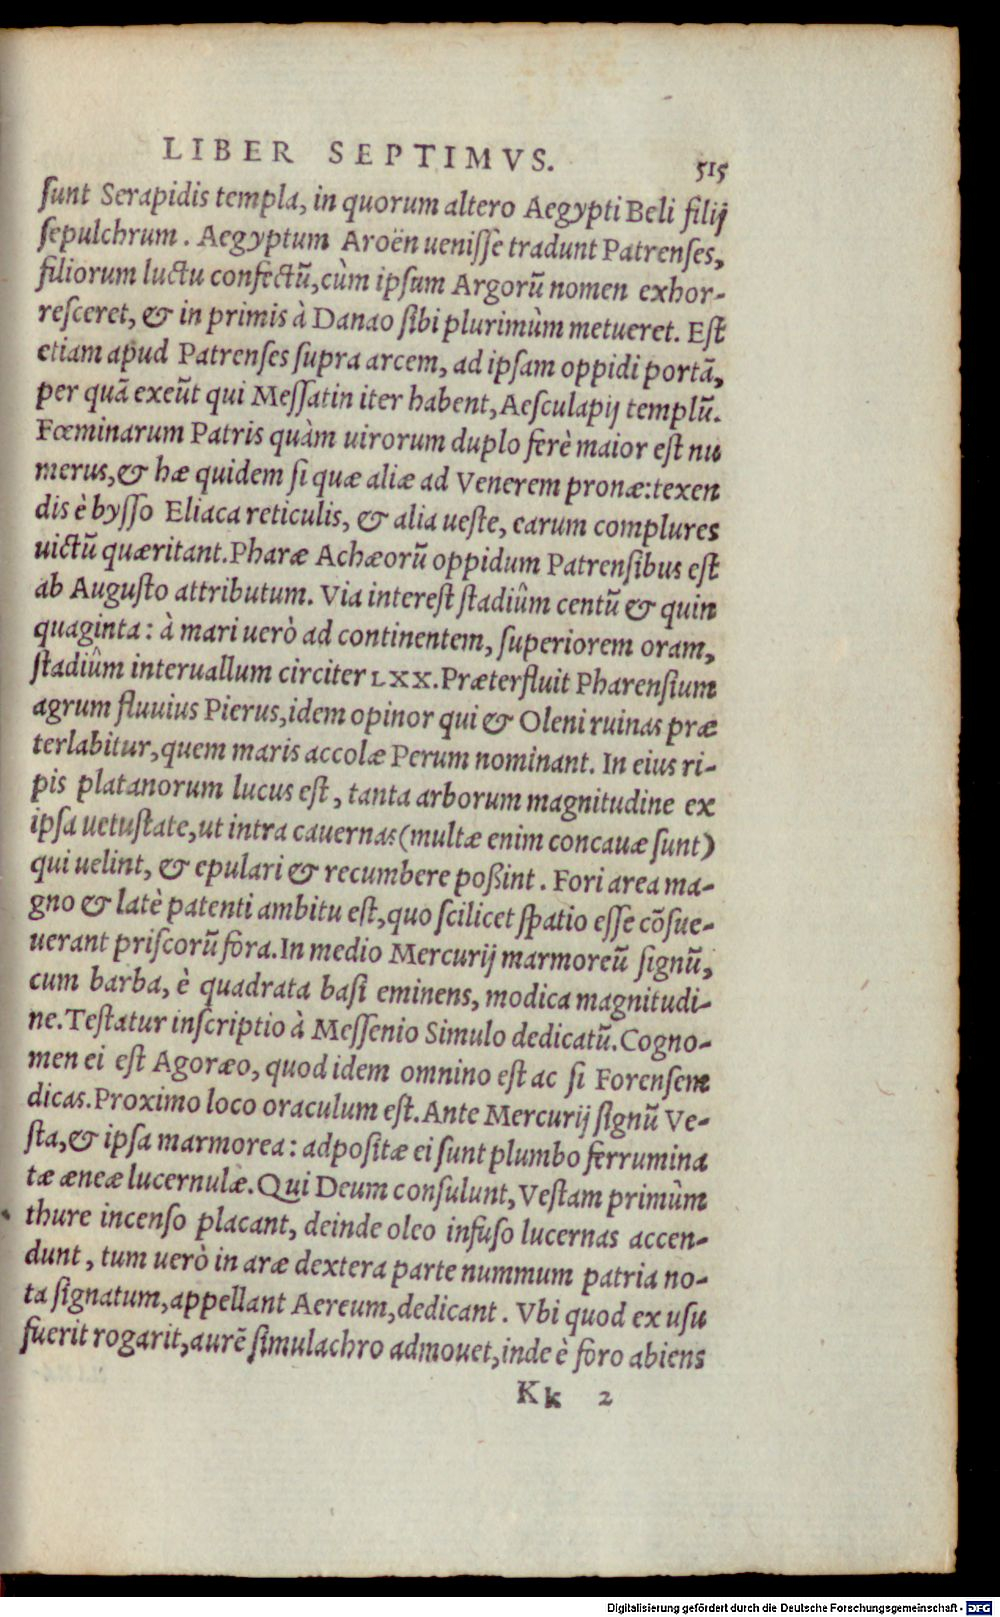 LIBER SEPTIMVS. 515
sunt Serapidis templa, in quorum altero Aegypti Beli filij
sepulchrum. Aegyptum Aroën uenisse tradunt Patrenses,
filiorum luctu confectũ, cùm ipsum Argorũ nomen exhor-
resceret, & in primis à Danao sibi plurimùm metueret. Est
etiam apud Patrenses supra arcem, ad ipsam oppidi portã,
per quã exeũt qui Messatin iter habent, Aesculapij templũ.
Fœminarum Patris quàm uirorum duplo ferè maior est nu
merus, & hæ quidem si quæ aliæ ad Venerem pronæ: texen
dis è bysso Eliaca reticulis, & alia ueste, earum complures
uictũ quæritant. Pharæ Achæorũ oppidum Patrensibus est
ab Augusto attributum. Via interest stadiûm centũ & quin
quaginta: à mari uerò ad continentem, superiorem oram,
stadiûm interuallum circiter LXX. Præterfluit Pharensium
agrum fluuius Pierus, idem opinor qui & Oleni ruinas præ
terlabitur, quem maris accolæ Perum nominant. In eius ri-
pis platanorum lucus est, tanta arborum magnitudine ex
ipsa uetustate, ut intra cauernas (multæ enim concauæ sunt)
qui uelint, & epulari & recumbere poßint. Fori area ma-
gno & latè patenti ambitu est, quo scilicet spatio esse cõsue-
uerant priscorũ fora. In medio Mercurij marmoreũ signũ,
cum barba, è quadrata basi eminens, modica magnitudi-
ne. Testatur inscriptio à Messenio Simulo dedicatũ. Cogno-
men ei est Agoræo, quod idem omnino est ac si Forensem
dicas. Proximo loco oraculum est. Ante Mercurij signũ Ve-
sta, & ipsa marmorea: adpositæ ei sunt plumbo ferrumina
tæ æneæ lucernulæ. Qui Deum consulunt, Vestam primùm
thure incenso placant, deinde oleo infuso lucernas accen-
dunt, tum uerò in aræ dextera parte nummum patria no-
ta signatum, appellant Aereum, dedicant. Vbi quod ex usu
fuerit rogarit, aurẽ simulachro admouet, inde è foro abiens
Kk 2
Digitalisierung gefördert durch die Deutsche Forschungsgemeinschaft - DFG